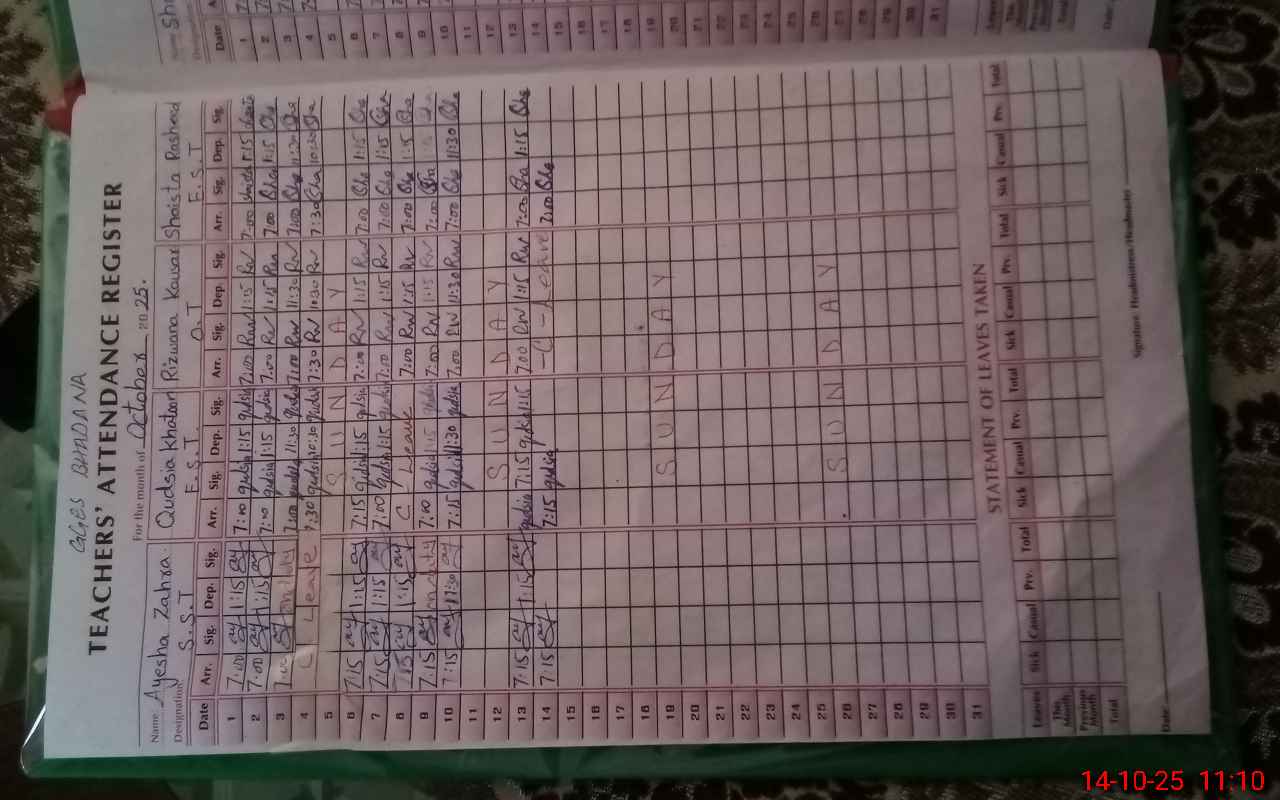 GGES BHADANA
TEACHERS' ATTENDANCE REGISTER
For the month of October 2025.
Name Ayesha Zahra. Qudsia Khatoon Rizwana Kousar Shaista Rasheed
Designation S.S.T E.S.T. O.T E.S.T
Date Arr. Sig. Dep. Sig. Arr. Sig. Dep. Sig. Arr. Sig. Dep. Sig. Arr. Sig. Dep. Sig.
1 7:00 ay 1:15 ay 7:00 qudsia 1:15 qudsia 7:00 Rw 1:15 Rw 7:00 1:15
2 7:00 ay 1:15 ay 7:00 qudsia 1:15 qudsia 7:00 Rw 1:15 Rw 7:00 1:15
3 7:00 ay on duty 7:00 qudsia 11:30 qudsia 7:00 Rw 11:30 Rw 7:00 11:20
4 C Leave 7:30 qudsia 10:30 qudsia 7:30 Rw Rw 7:30 10:20
5 S U N D A Y
6 7:15 ay 1:15 ay 7:15 qudsia 1:15 qudsia 7:00 Rw 1:15 Rw 7:00 1:15
7 7:15 ay 1:15 ay 7:00 qudsia 1:15 qudsia 7:00 Rw 1:15 Rw 7:00 1:15
8 7:15 ay 1:15 ay C Leave 7:00 Rw 1:15 Rw 7:00 1:15
9 7:15 ay 7:00 qudsia 1:15 qudsia 7:00 Rw 1:15 Rw 7:00
10 7:15 ay 11:30 ay 7:15 qudsia 11:30 qudsia 7:00 Rw 11:30 Rw 7:00 11:30
11
12 S U N D A Y
13 7:15 ay 1:15 ay qudsia 7:15 qudsia 1:15 7:00 Rw 1:15 Rw 7:00 1:15
14 7:15 ay 7:15 qudsia - C - Leave 7:00
15
16
17
18
19 S U N D A Y
20
21
22
23
24
25
26 S U N D A Y
27
28
29
30
31
STATEMENT OF LEAVES TAKEN
Leaves Sick Casual Prv. Total Sick Casual Prv. Total Sick Casual Prv. Total Sick Casual Prv. Total
This Month
Previous Month
Total
Date Signature Headmistress/Headmaster
14-10-25 11:10